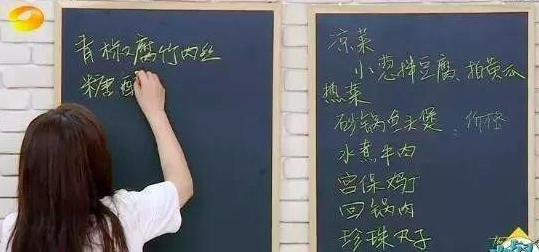 青椒腐竹肉丝
糖
凉菜
小葱拌豆腐、拍黄瓜
热菜
砂锅鱼头煲:价格
水煮牛肉
宫保鸡丁
回锅肉
珍珠丸子